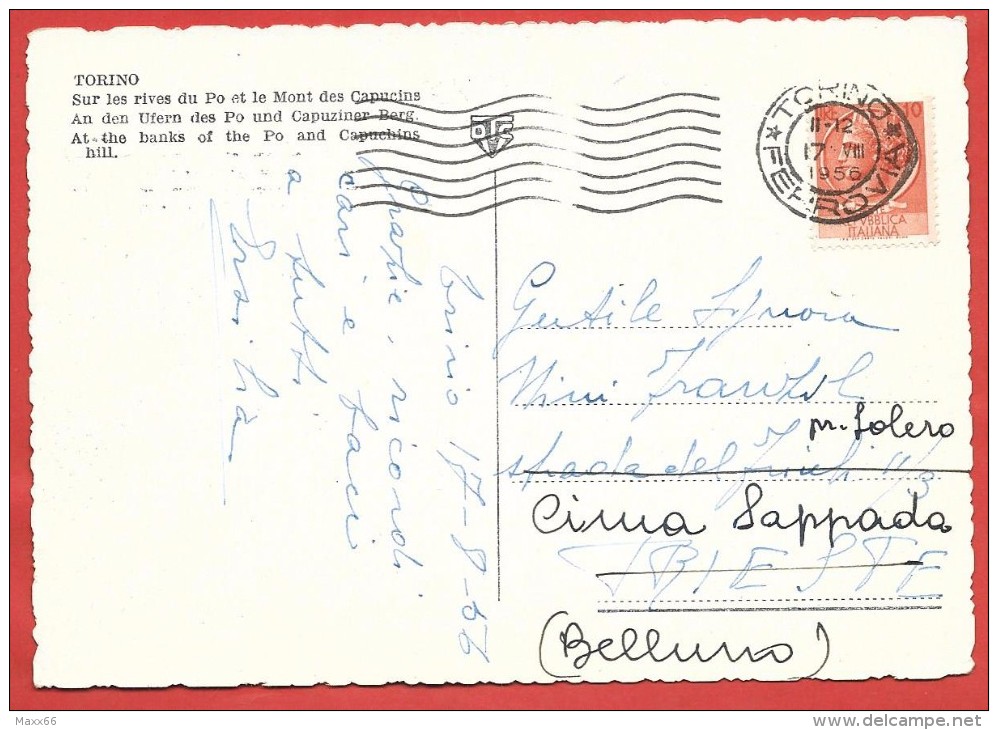 TORINO
Sur les rives du Po et le Mont des Capucins
An den Ufern des Po und Capuziner Berg.
At the banks of the Po and Capuchins
hill.
TORINO
FERROVIA
11-12
17 VIII
1956
10
REPUBBLICA
ITALIANA
Torino 17-8-56
Grazie, ricordi
cari e baci
a tutti
Gentile Signora
Mimi
pr. Solero
strada del Friuli
Cima Sappada
TRIESTE
(Belluno)
Maxx66
delcampe.net